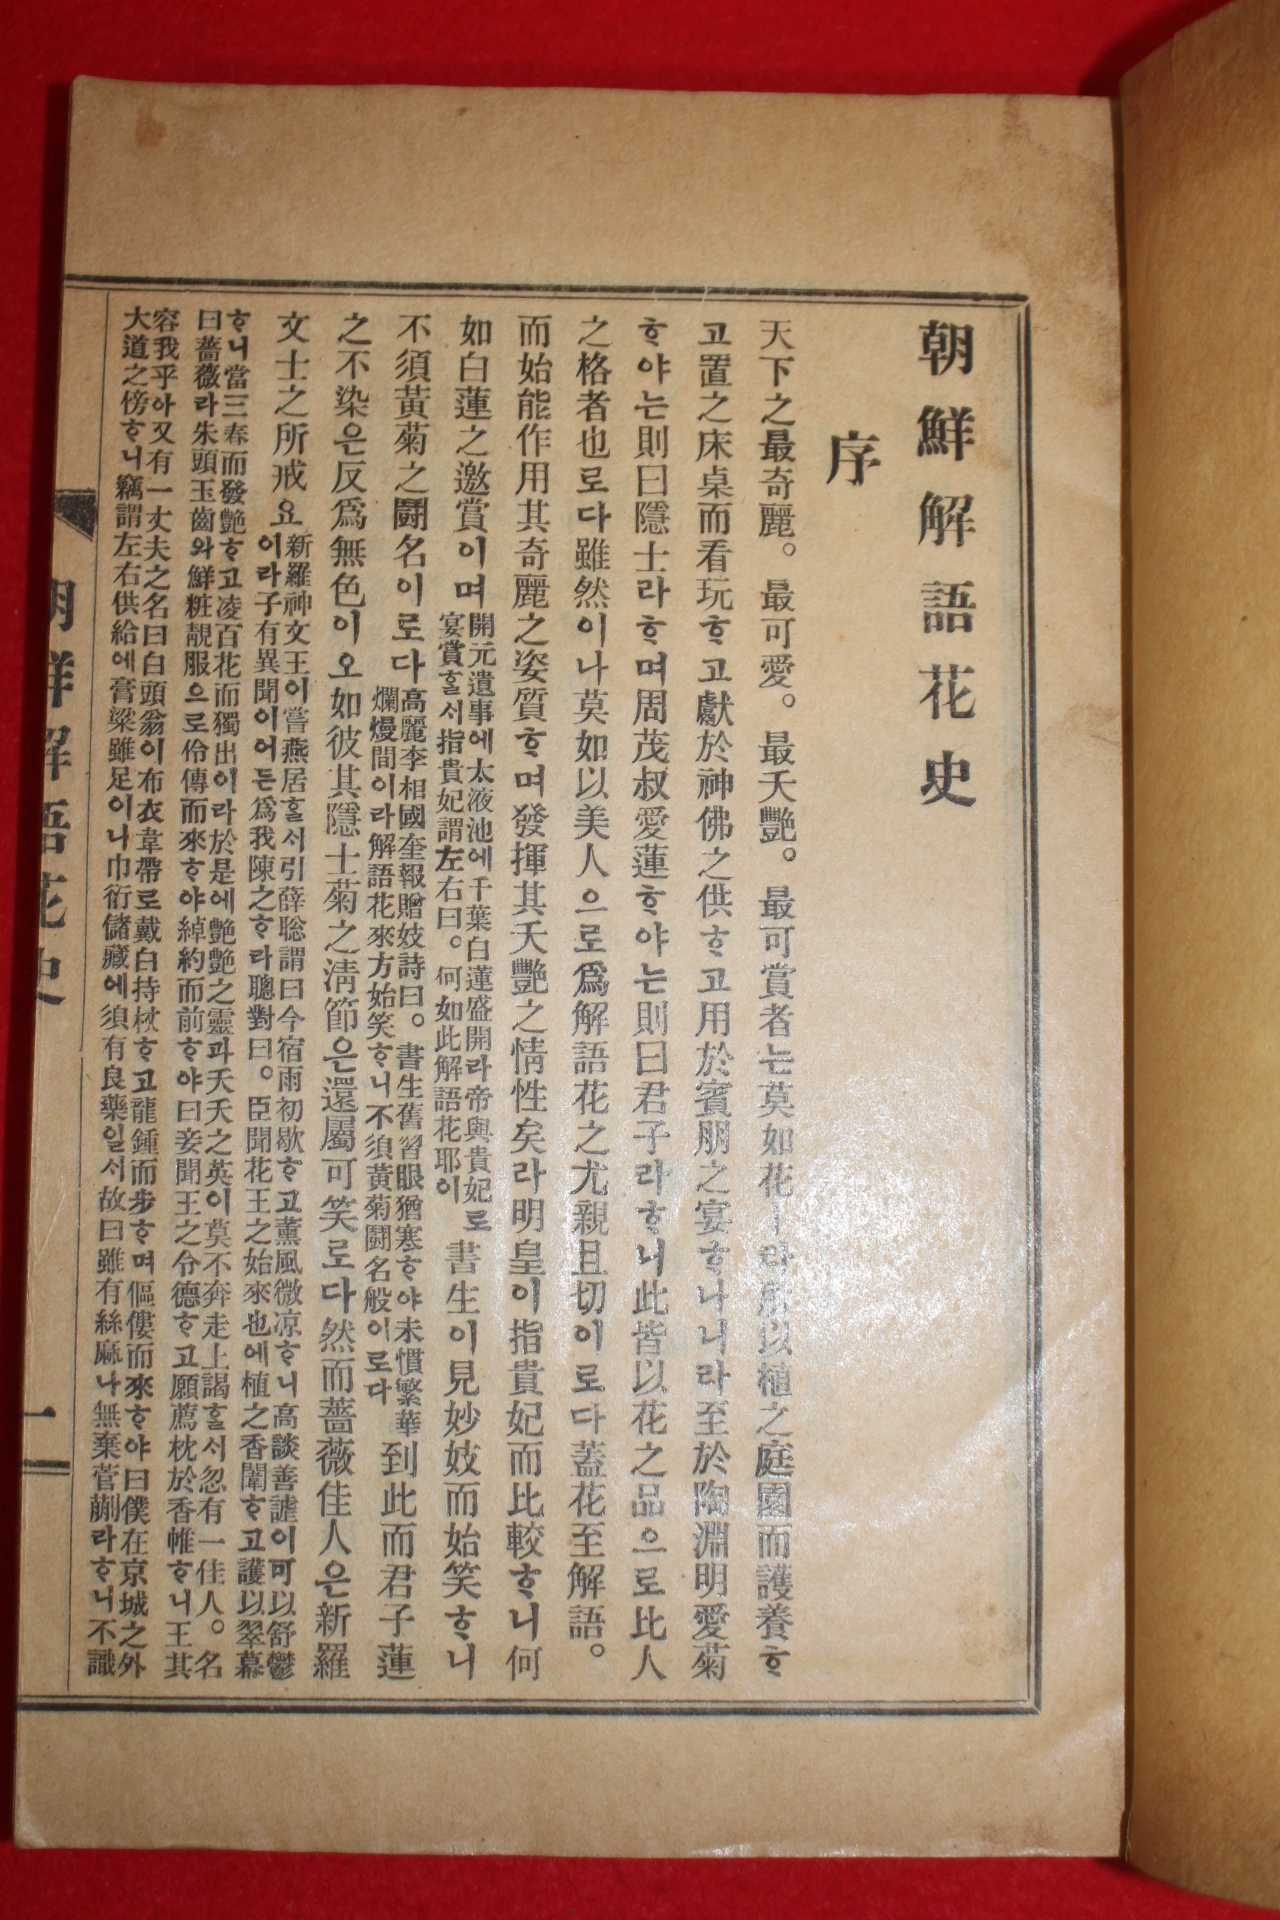 朝鮮解語花史
序
天下之最奇麗。最可愛。最夭艷。最可賞者는莫如花ㅣ라所以植之庭園而護養ᄒᆞ
고置之床桌而看玩ᄒᆞ고獻於神佛之供ᄒᆞ고用於賓朋之宴ᄒᆞ나니라至於陶淵明愛菊
ᄒᆞ야는則曰隱士라ᄒᆞ며周茂叔愛蓮ᄒᆞ야는則曰君子라ᄒᆞ니此皆以花之品으로比人
之格者也로다雖然이나莫如以美人으로爲解語花之尤親且切이로다蓋花至解語。
而始能作用其奇麗之姿質ᄒᆞ며發揮其夭艷之情性矣라明皇이指貴妃而比較ᄒᆞ니何
如白蓮之邀賞이며
開元遺事에太液池에千葉白蓮盛開라帝與貴妃로
宴賞ᄒᆞᆯᄉᆡ指貴妃謂左右曰。何如此解語花耶이
書生이見妙妓而始笑ᄒᆞ니
不須黃菊之鬪名이로다
高麗李相國奎報贈妓詩曰。書生舊習眼猶寒ᄒᆞ야未慣繁華
爛熳間이라解語花來方始笑ᄒᆞ니不須黃菊鬪名般이로다
到此而君子蓮
之不染은反爲無色이오如彼其隱士菊之淸節은還屬可笑로다然而薔薇佳人은新羅
文士之所戒요
新羅神文王이嘗燕居ᄒᆞᆯᄉᆡ引薛聡謂曰今宿雨初歇ᄒᆞ고薰風微凉ᄒᆞ니高談善謔이可以舒鬱
이라子有異聞이어든爲我陳之ᄒᆞ라聰對曰。臣聞花王之始來也에植之香闈ᄒᆞ고護以翠幕
ᄒᆞ니當三春而發艶ᄒᆞ고凌百花而獨出이라於是에艶艶之靈과夭夭之英이莫不奔走上謁ᄒᆞᆯᄉᆡ忽有一佳人。名
曰薔薇라朱頭玉齒와鮮粧靚服으로伶俜而來ᄒᆞ야綽約而前ᄒᆞ야曰妾聞王之令德ᄒᆞ고願薦枕於香帷ᄒᆞ니王其
容我乎아又有一丈夫之名曰白頭翁이布衣韋帶로戴白持杖ᄒᆞ고龍鍾而步ᄒᆞ며傴僂而來ᄒᆞ야曰僕在京城之外
大道之傍ᄒᆞ니竊謂左右供給에膏粱雖足이나巾衍儲藏에須有良藥일ᄉᆡ故曰雖有絲麻나無棄菅蒯라ᄒᆞ니不識
朝鮮解語花史
一